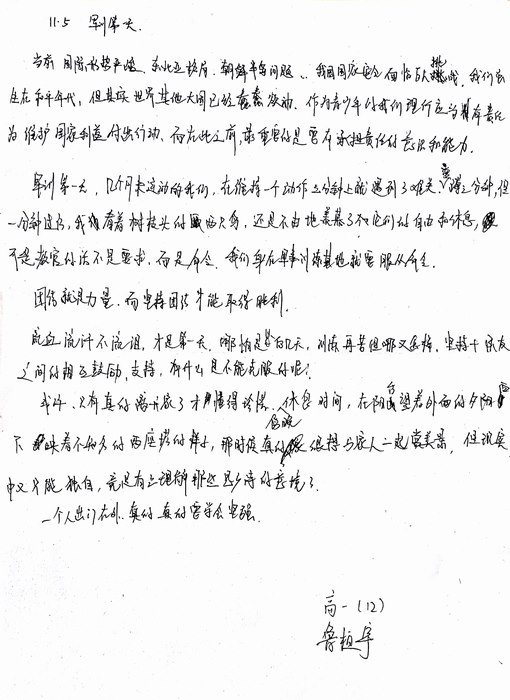 11.5 军训第一天
当前国际形势严峻、东北亚格局、朝鲜半岛问题、我国国家安全面临巨大挑战。我们虽
生在和平年代，但其实世界其他大国已经蠢蠢欲动。作为青少年的我们理所应当有责任
为维护国家利益付出行动。而在此之前，最重要的是要有承担责任的意识和能力。
军训第一天，几个月未运动的我们，在维持一个动作三分钟上就遇到了难关。蹲三分钟，但
一分钟过后，我看着树枝头的鸟，还是不由地羡慕了不它们的自由和休息，
可是教官的话不是要求，而是命令。我们身在军事训练基地就要服从命令。
团结就是力量，而坚持团结才能取得胜利。
流血流汗不流泪，才是第一天，哪怕是最后几天，训练再苦但哪又怎样，坚持＋朋友
之间的相互鼓励、支持，有什么是不能克服的呢？
或许，只有真的离开家了才懂得珍惜。休息时间，在阳台望着外面的夕阳
下映着不知名的两座塔的样子，那时候真的很想与家人一起赏美景，但现实
中又只能独自，竟是有
一个人出门在外，真的真的要学会坚强。
高一（12）
鲁植宇